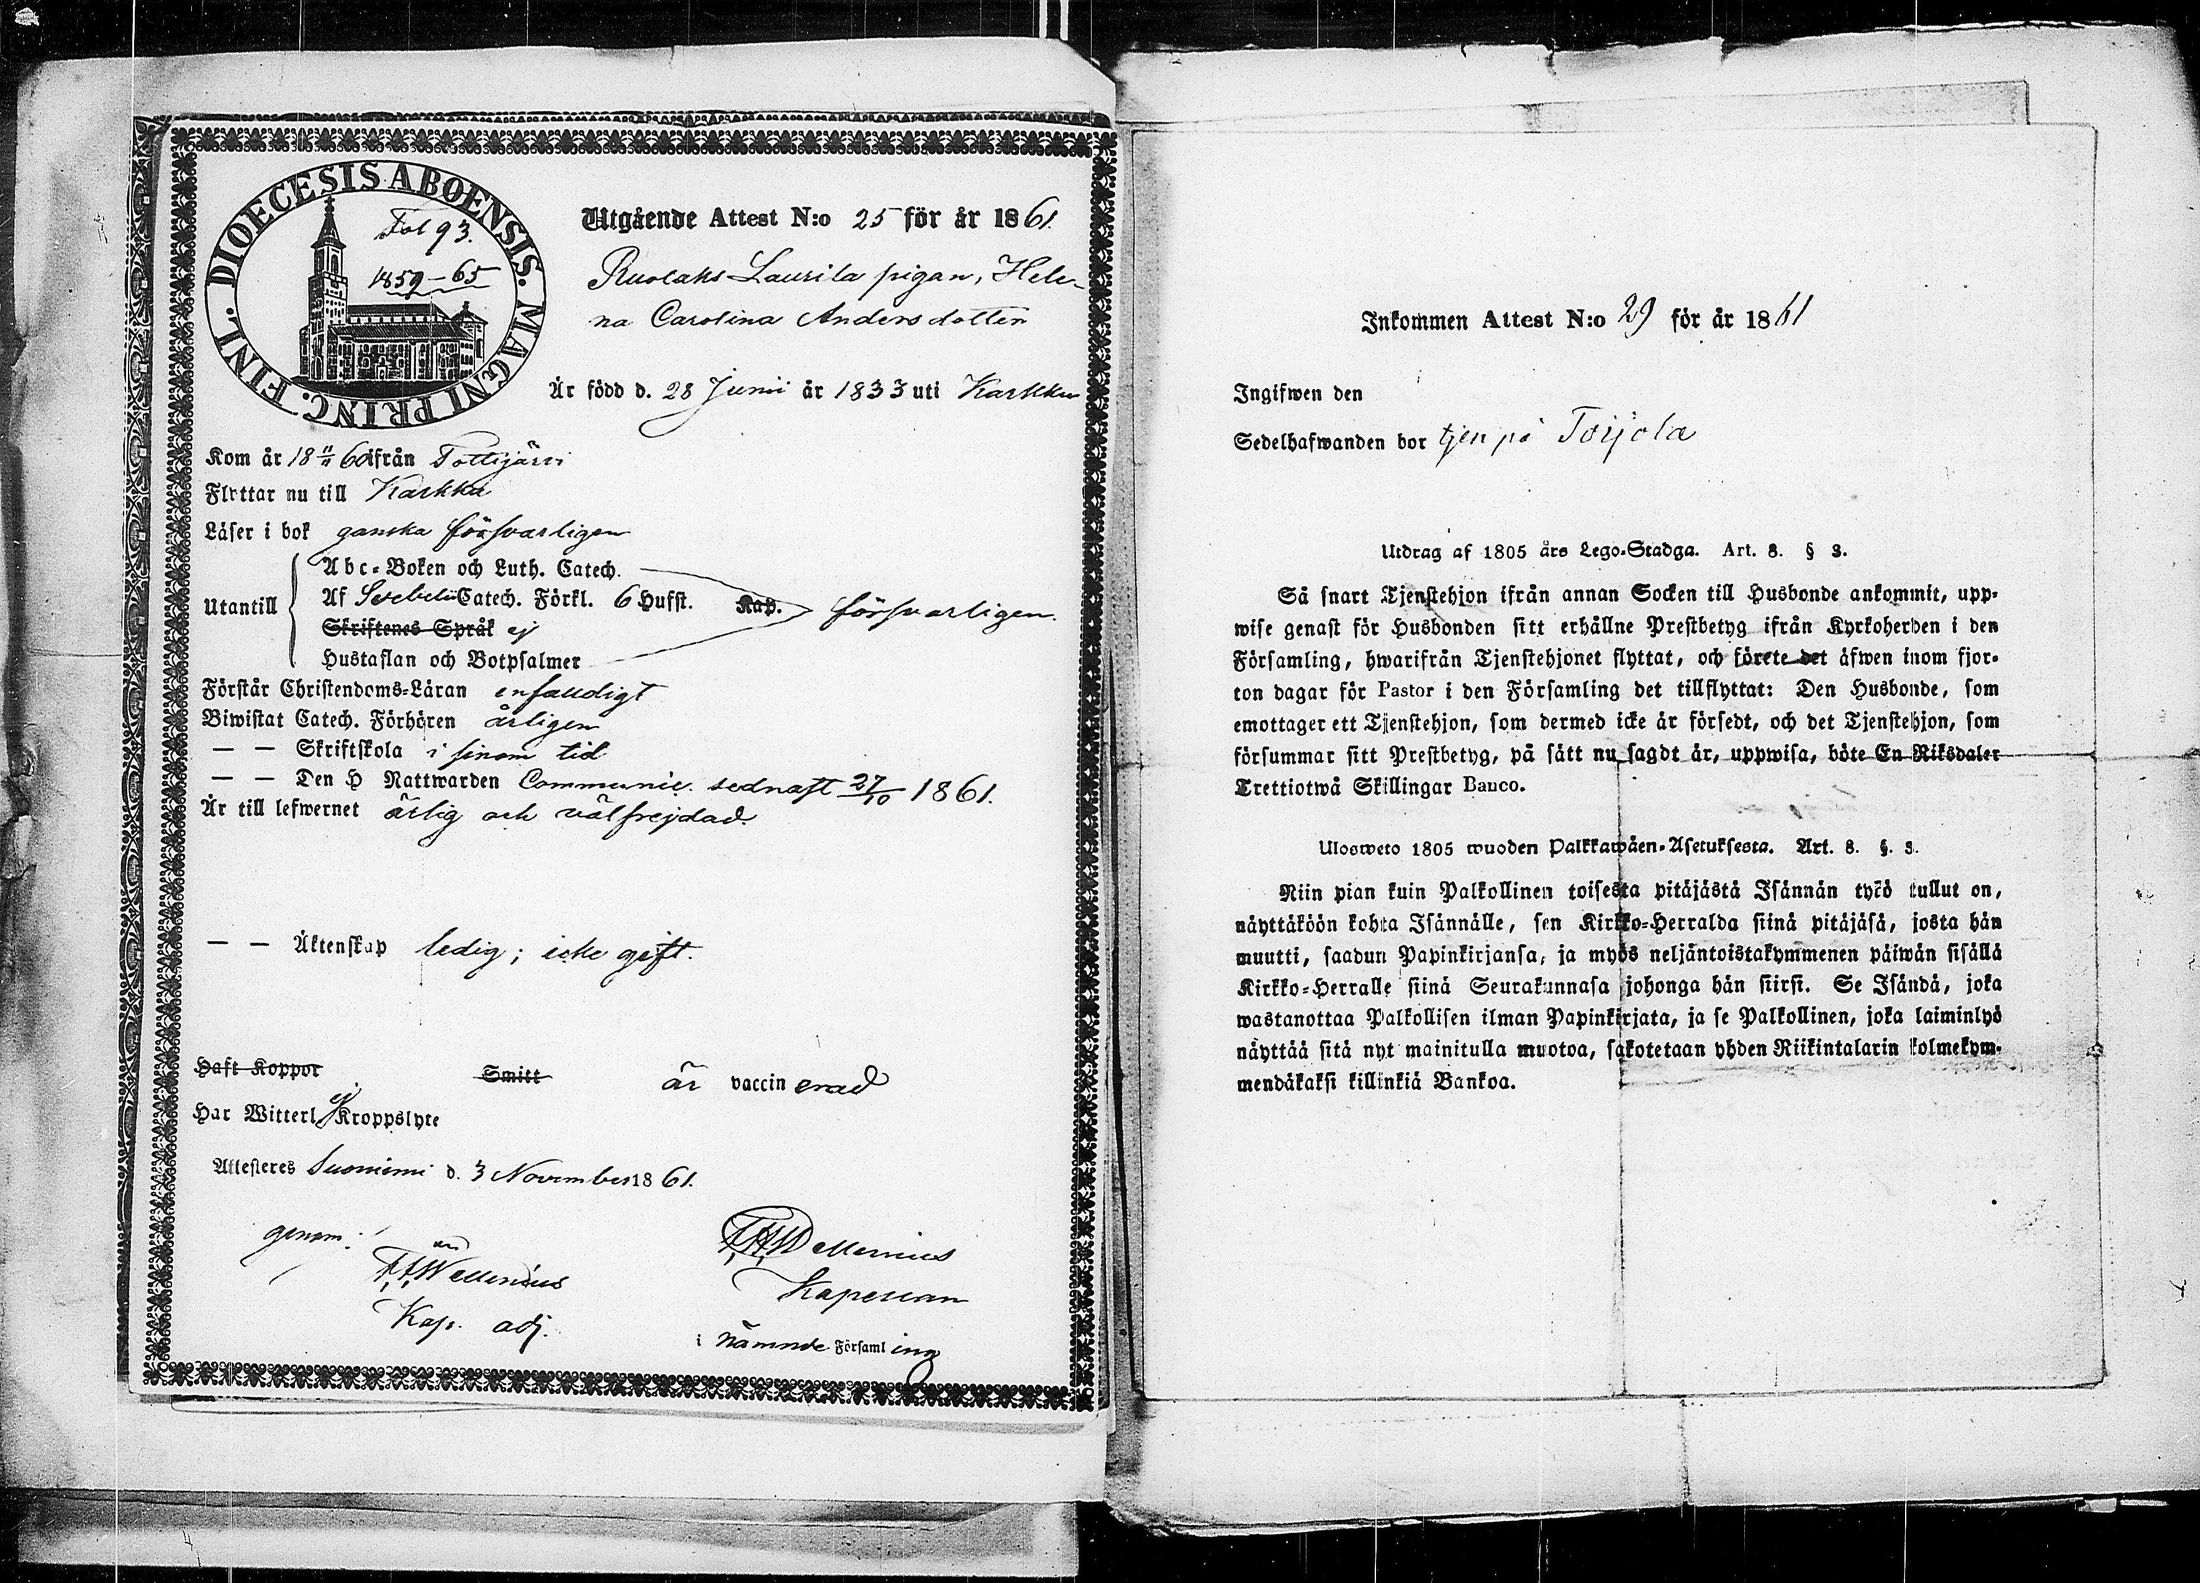 DIOECESIS ABOENSIS. MAGNI PRINC. FINL.
Fol 93.
1859-65
Utgående Attest N:o 25 för år 1861.
Ruolahs Laurila pigan, Hele-
na Carolina Andersdotter
Är född d. 28 Junii år 1833 uti Karkku
Kom år 18 11/11 60 ifrån Tottijärvi
Flyttar nu till Karkku
Läser i bok ganska försvarligen
Utantill
Abc-Boken och Luth. Catech.
Af Svebelii Catech. Förkl. 6 Hufst. Kap. försvarligen.
Skriftenes Språk ej
Hustaflan och Botpsalmer
Förstår Christendoms-Läran enfaldigt
Biwistat Catech. Förhören årligen
— — Skriftskola i sinom tid
— — Den H Nattwarden Communic. sednast 27/10 1861.
Är till lefwernet ärlig och välfrejdad.
— — Äktenskap ledig; icke gift.
Haft Koppor Smitt är vaccinerad
Har Witterl. ej Kroppslyte
Attesteras Suoniemi d. 3 November 1861.
genom:
F.H.Wellenius
Kap. adj.
F.H.Wellenius
Kapellan
i nämnde Församling
Inkommen Attest N:o 29 för år 1861
Ingifwen den
Sedelhafwanden bor tjen på Toijola
Utdrag af 1805 års Lego-Stadga. Art. 8. § 3.
Så snart Tjenstehjon ifrån annan Socken till Husbonde ankommit, upp-
wise genast för Husbonden sitt erhållne Prestbetyg ifrån Kyrkoherden i den
Församling, hwarifrån Tjenstehjonet flyttat, och förete det äfwen inom fjor-
ton dagar för Pastor i den Församling det tillflyttat: Den Husbonde, som
emottager ett Tjenstehjon, som dermed icke är försedt, och det Tjenstehjon, som
försummar sitt Prestbetyg, på sätt nu sagdt är, uppwisa, böte En Riksdaler
Trettiotwå Skillingar Banco.
Ulosweto 1805 wuoden Palkkawäen-Asetuksesta. Art. 8. §. 3.
Niin pian kuin Palkollinen toisesta pitäjästä Isännän tykö tullut on,
näyttäköön kohta Isännälle, sen Kirkko-Herralda siinä pitäjäsä, josta hän
muutti, saadun Papinkirjansa, ja myös neljäntoistakymmenen päiwän sisällä
Kirkko-Herralle siinä Seurakunnasa johonga hän siirsi. Se Isändä, joka
wastanottaa Palkollisen ilman Papinkirjata, ja se Palkollinen, joka laiminlyö
näyttää sitä nyt mainitulla muotoa, sakotetaan yhden Riikintalarin kolmekym-
mendäkaksi killinkiä Bankoa.